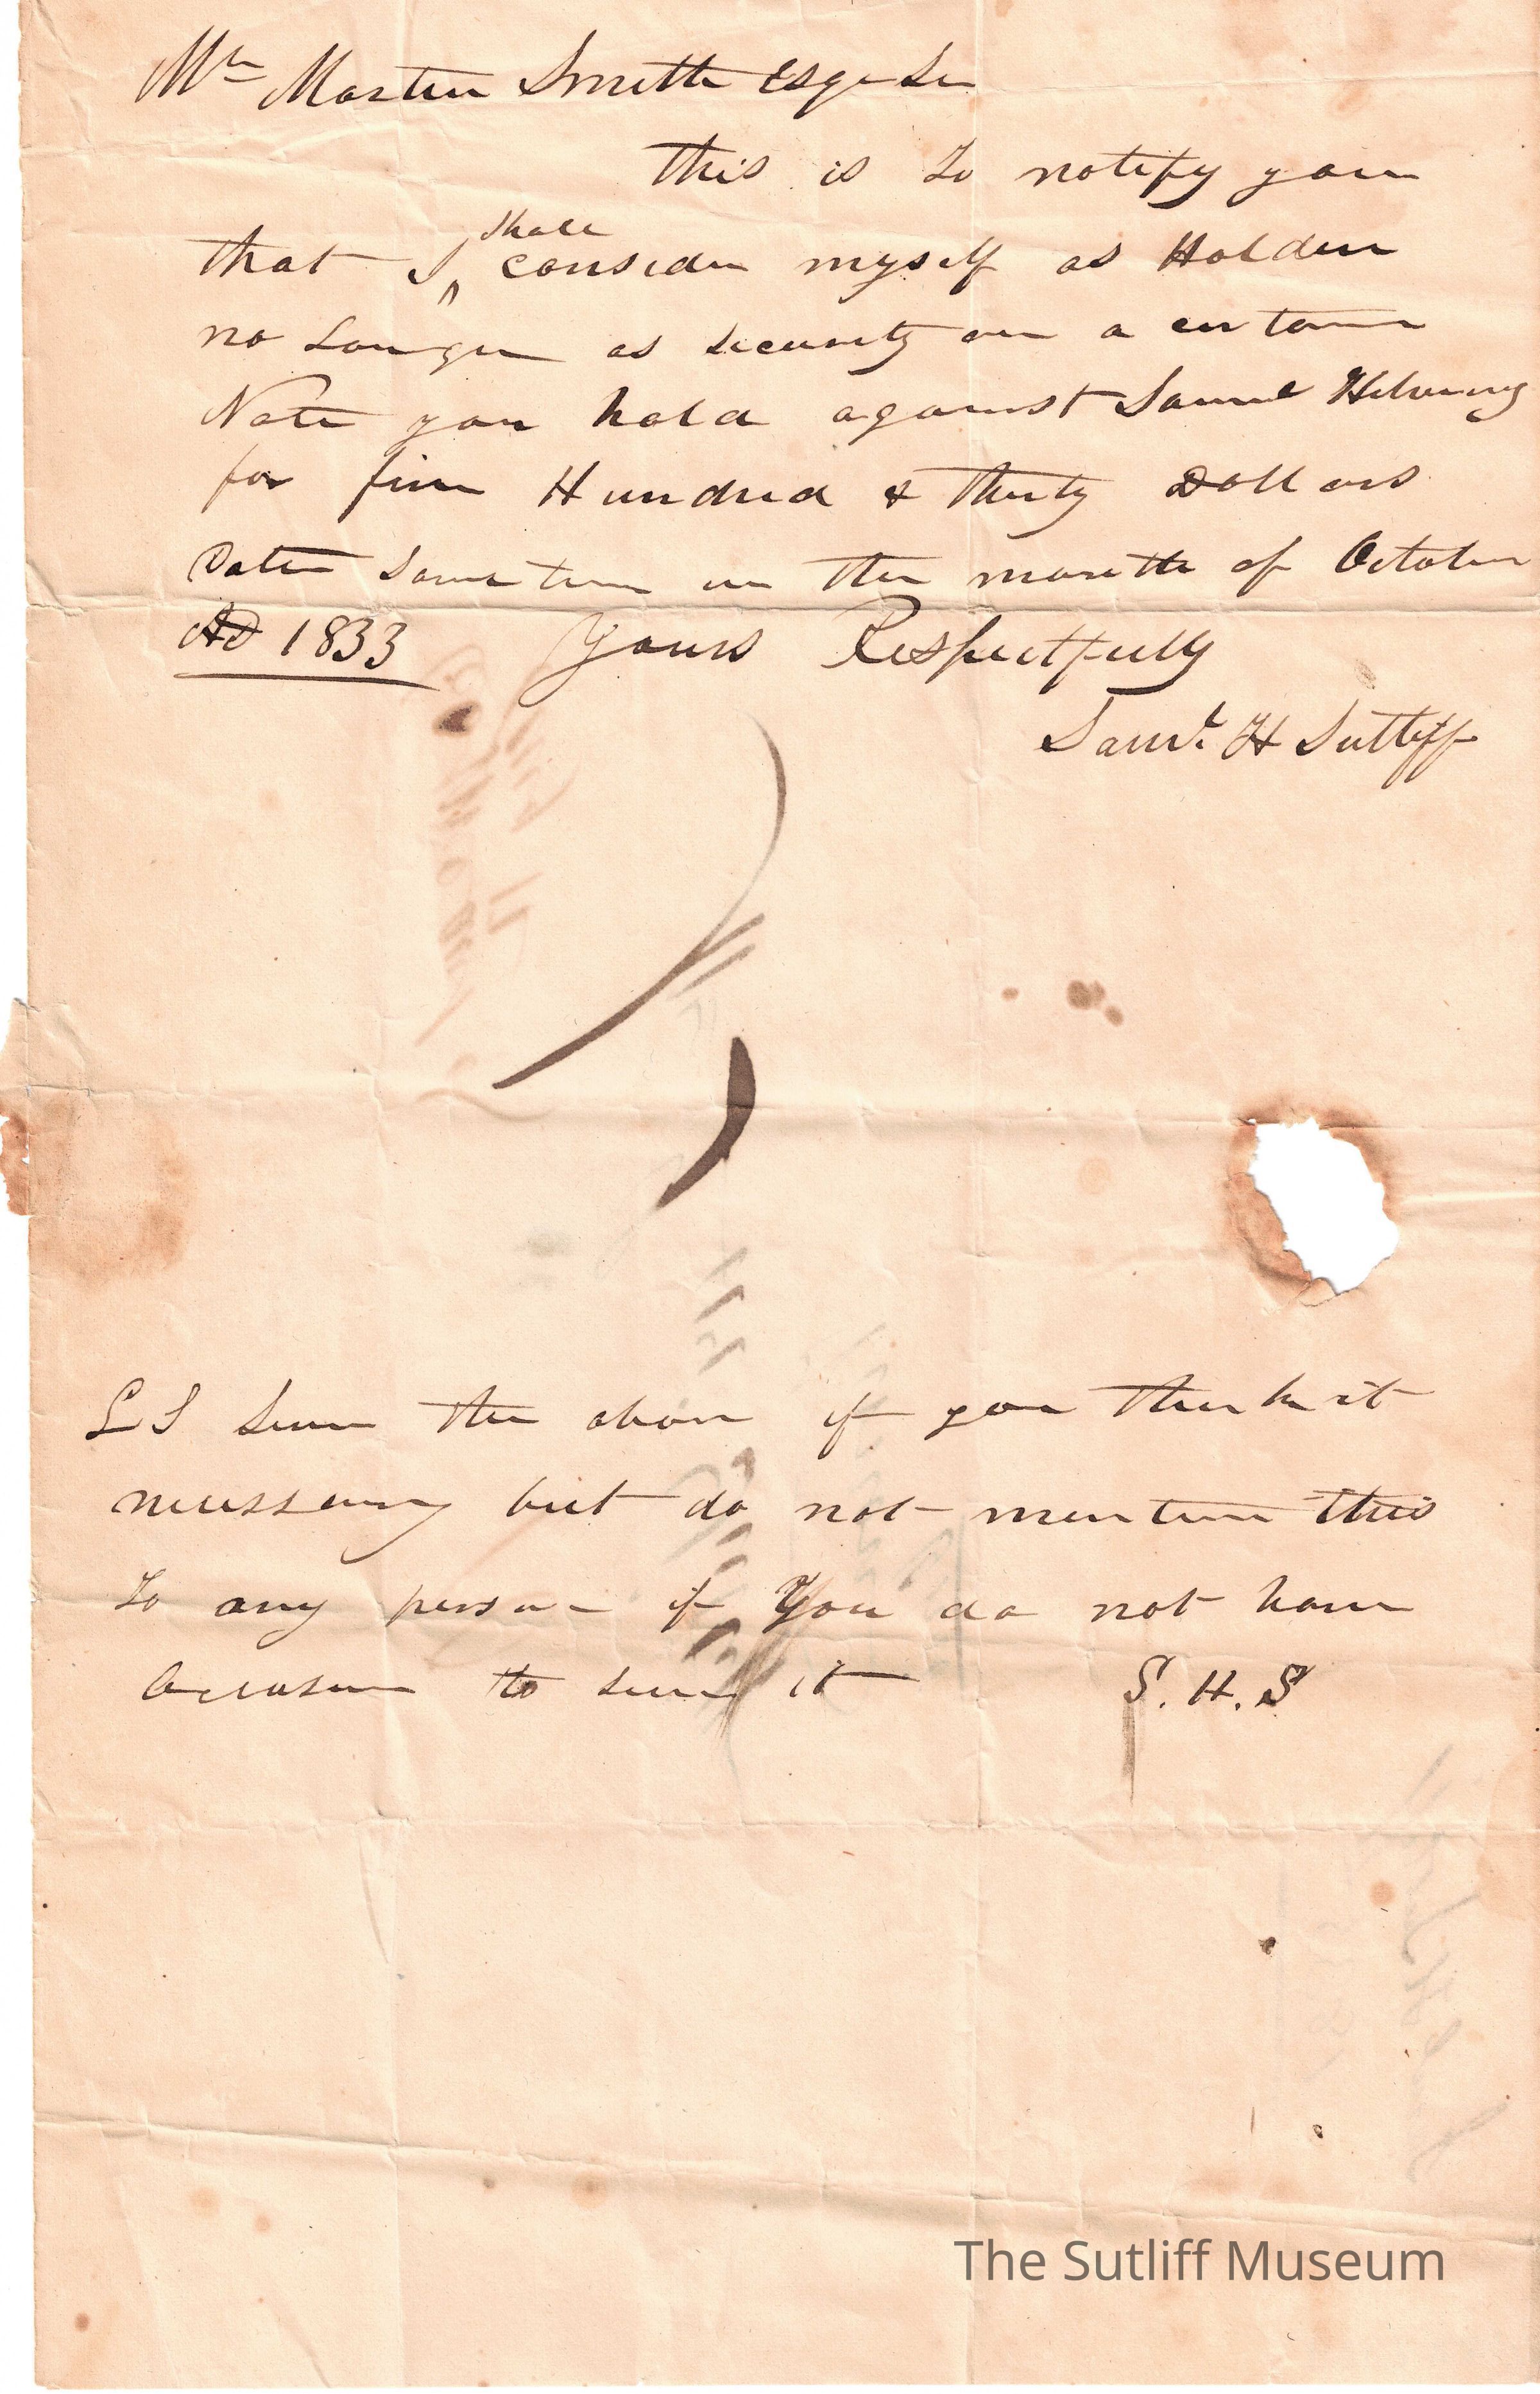 Mr Martin Smith Esqr Sir
This is to notify you
that I shall consider myself as Holden
no Longer as security on a certain
Note you hold against Saml
for five Hundred & thirty Dollars
Dated Sometime in the month of October
AD 1833 Yours Respectfully
Saml. H Sutliff
L S Serve the above if you think it
necessary but do not mention this
to any person if You do not have
occasion to serve it S. H. S
The Sutliff Museum